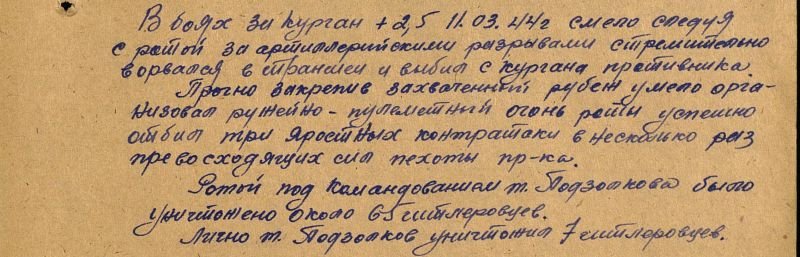 В боях за курган + 2,5 11.03.44г смело следуя
с ротой за артиллерийскими разрывами стремительно
ворвался в траншеи и выбил с кургана противника.
Прочно закрепив захваченный рубеж умело орга-
низовал ружейно-пулеметный огонь роты успешно
отбил три яростных контратаки в несколько раз
превосходящих сил пехоты пр-ка.
Ротой под командованием т. Подзолкова было
уничтожено около 65 гитлеровцев.
Лично т. Подзолков уничтожил 7 гитлеровцев.